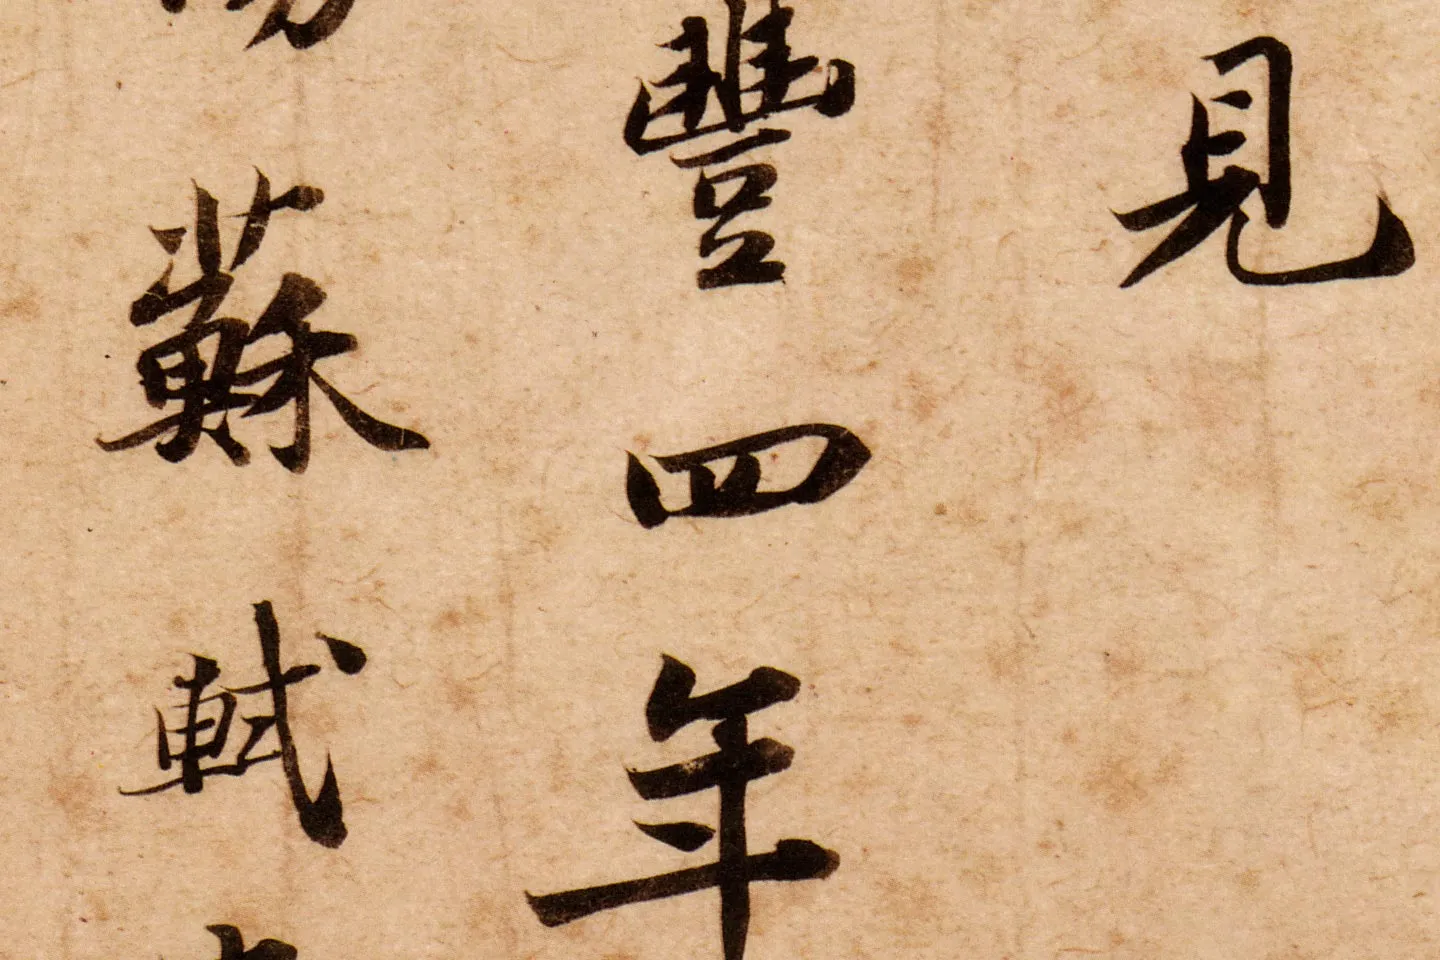 見
豐四年
蘇軾